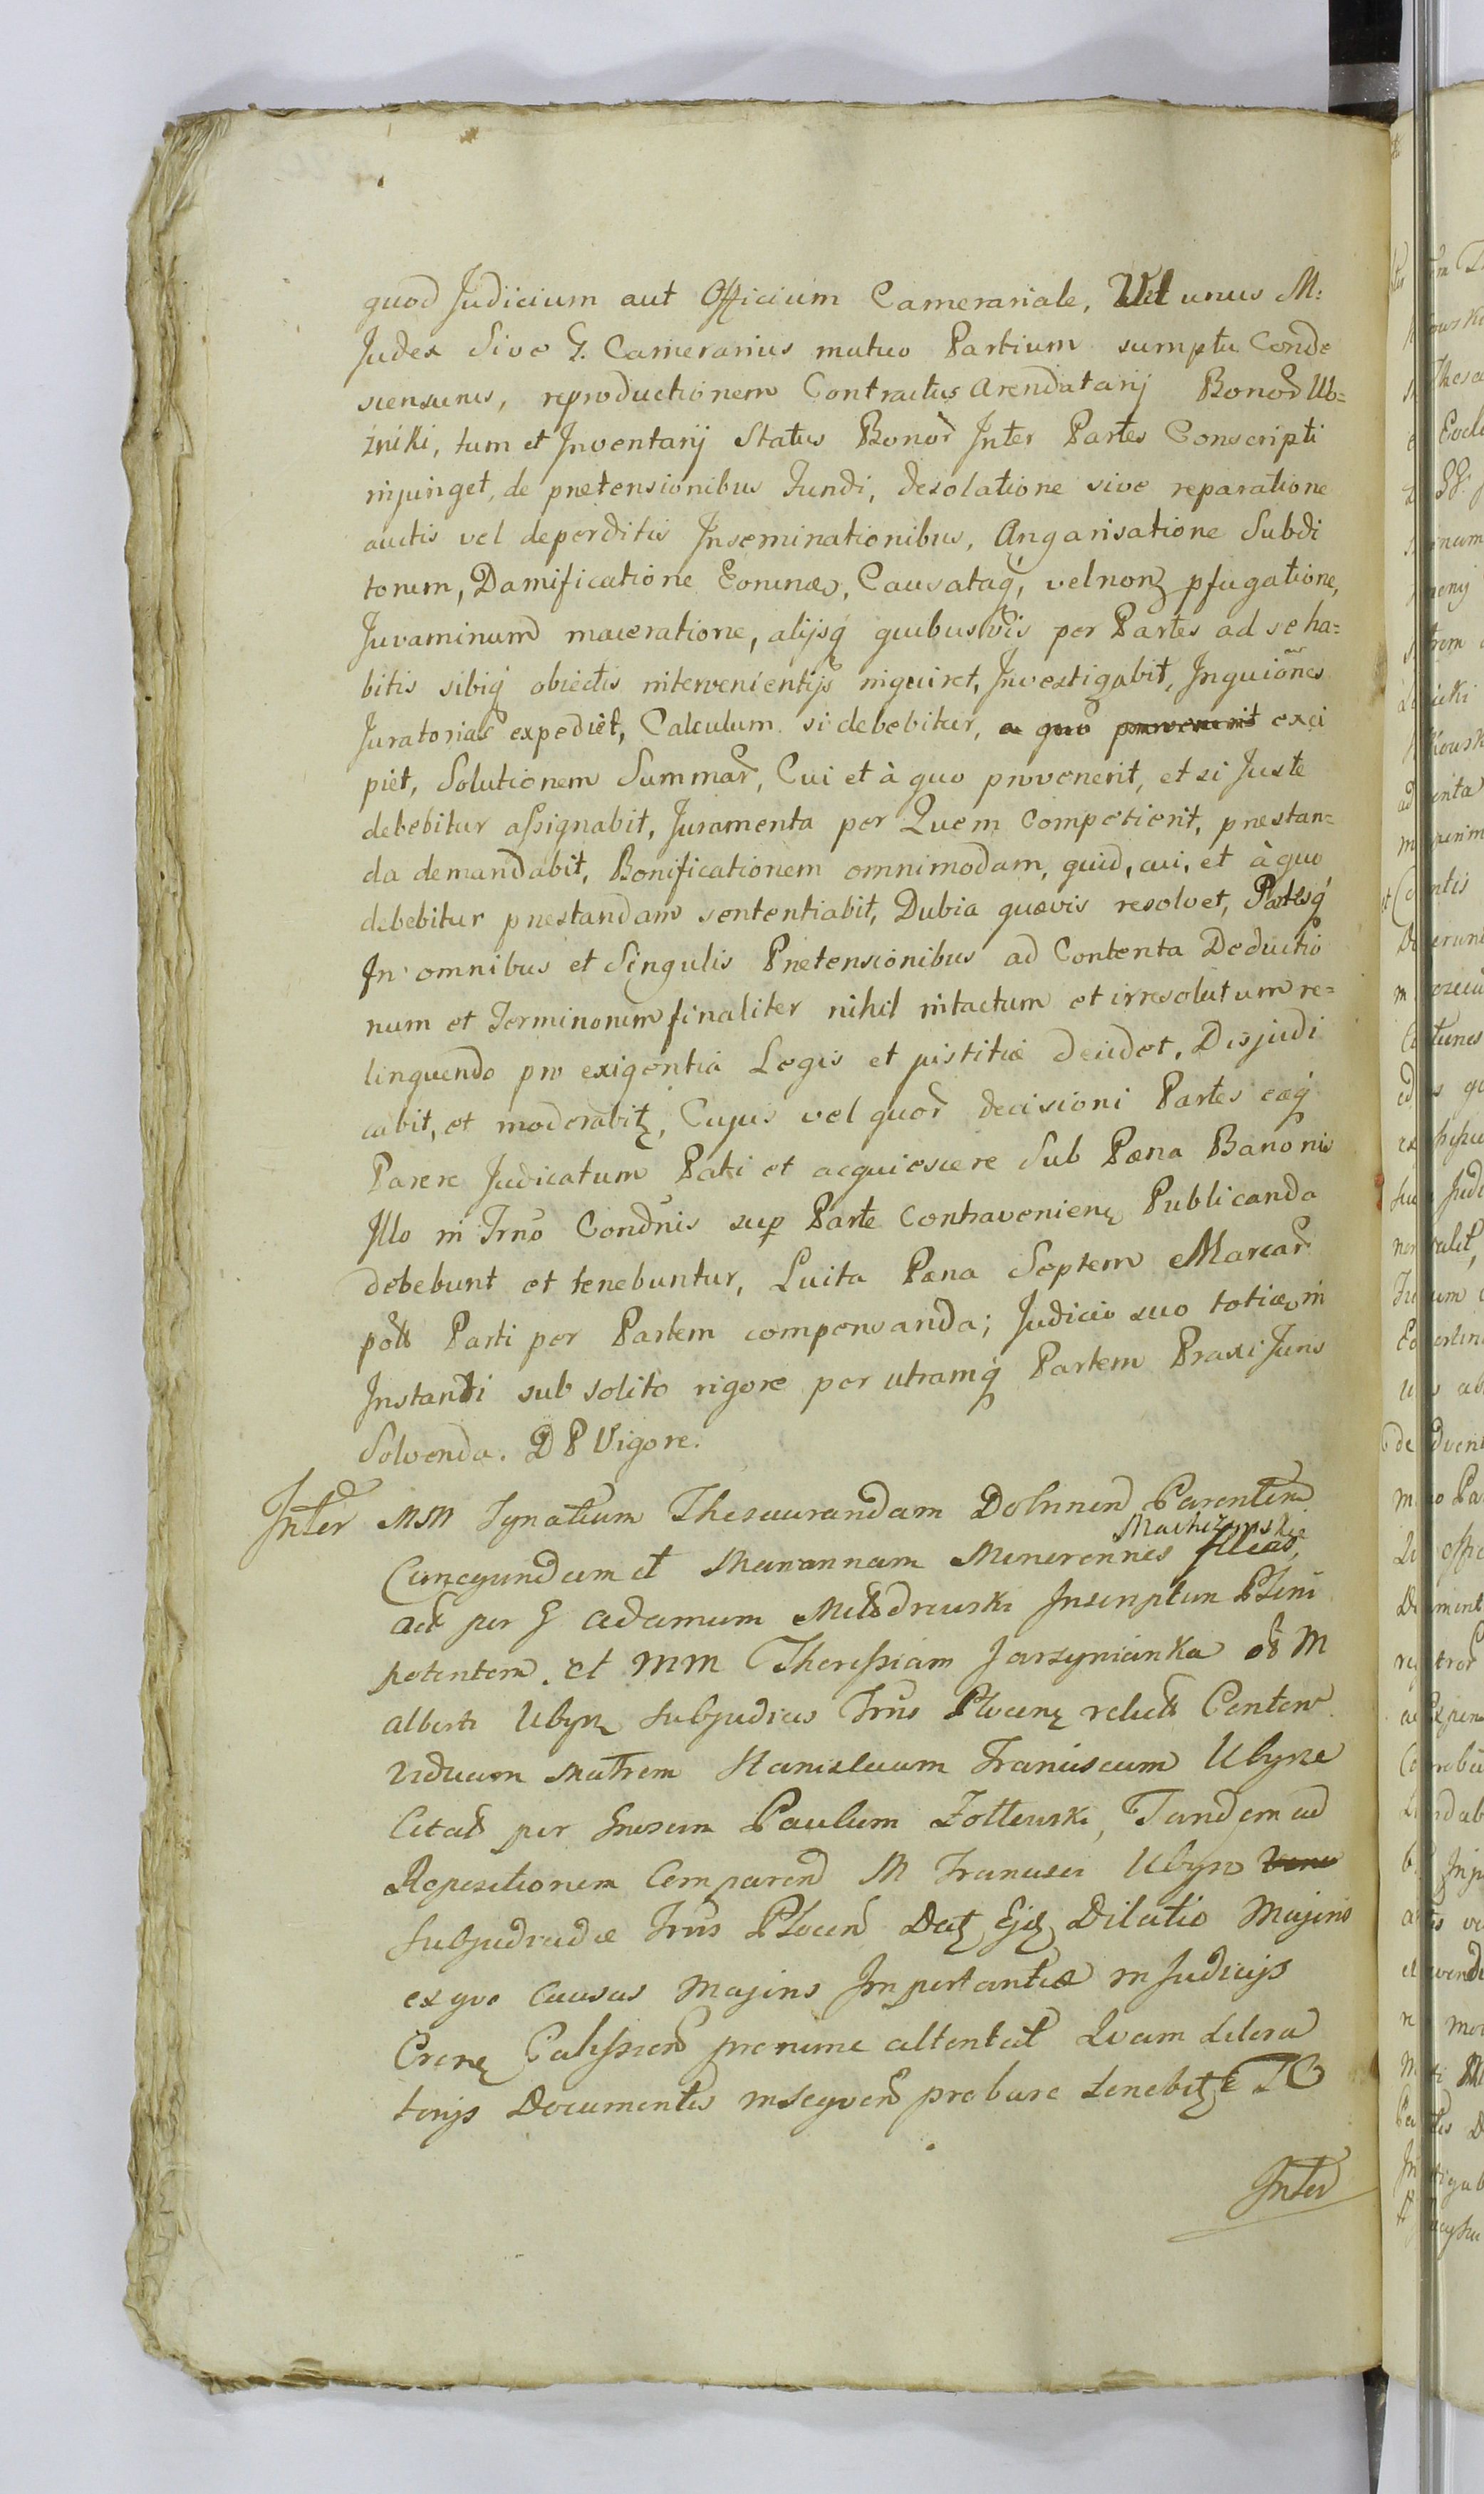 quod Judicium aut Officium Camerariale, Vel unus M:
Judex Sive G. Camerarius mutuo Partium sumptu Conde
scensurus, reproductionem Contractus Arendatarij Bonor Ub=
iniki, tum et Inventarij Status Bonor Inter Partes Conscripti
injunget, de prætensionibus Fundi, desolatione sive reparatione
auctis vel deperditis Inseminationibus, Angarisatione Subdi
torum, Damificatione Eorunde, Causataq, vel non pfugatione,
Juvaminum maceratione, alijsq quibusvis per Partes ad se ha=
bitis sibiq obiectis intervenientijs inquiret, Investigabit, Inquiones
Juratorias expediet, Calculum si debebitur, a quo provenerit exci
piet, Solutionem Summar, Cui et à quo provenerit, et si Juste
debebitur assignabit, Juramenta per Quem Competierit, præstan=
da demandabit, Bonificationem omnimodam, quid, cui, et à quo
debebitur præstandam sententiabit, Dubia quævis resolvet, Partesq
In omnibus et Singulis Prætensionibus ad Contenta Deductio
num et Terminorum finaliter nihil intactum et irresolutum re=
linquendo pro exigentia Legis et justitiæ decidet, Disjudi
cabit, et moderabit, Cujus vel quor decisioni Partes eæq
Parere Judicatum Pati et acquiescere Sub Pæna Banonis
Illo in Trno Condnis sup Parte Contraveniens Publicanda
debebunt et tenebuntur, Luita Pæna Septem Marcar
pols Parti per Partem compensanda; Judicio suo toties in
Instanti sub solito rigore per utramq Partem Praxi Juris
Solvenda. D P Vigore.
Inter MM Ignatium Thesaurandam Dobrinen Parentem
Machczynskie
Cunegundam et Mariannam Minorennes filias,
Act per G Adamum Modrewski Inscriptum Pleni
potentem. et MM Theressiam Jarzynianka olb M
Alberti Ubysz Subjudicis Trris Plocen relict Conten
Viduam Matrem Stanislaum Franciscum Ubysze
Citat per Gnosum Paulum Zottewski, Tandem ad
Repositionem Comparend M Francisci Ubysz
Subjudicidæ Trris Plocen Dat Ejd Dilatio Majoris
ex quo Causas Majoris Importantiæ in Judicijs
Calissien pronunc attentat Quam Litera
torijs Documentis insequen probare tenebit
Inter